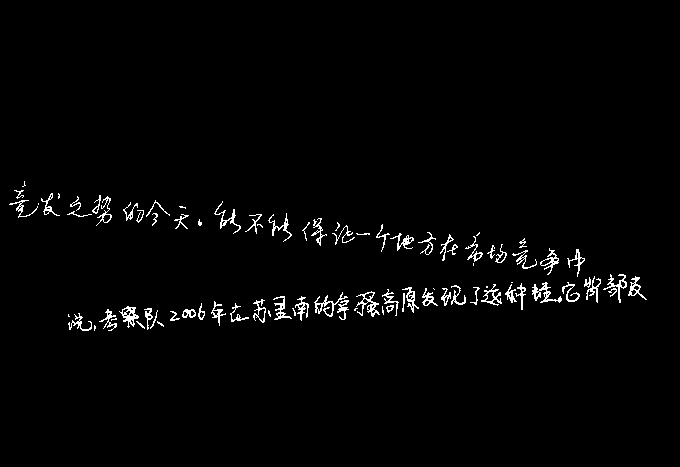 竞发之势的今天。能不能保证一个地方在市场竞争中
说,考察队2006年在苏里南的拿骚高原发现了这种蛙。它背部皮